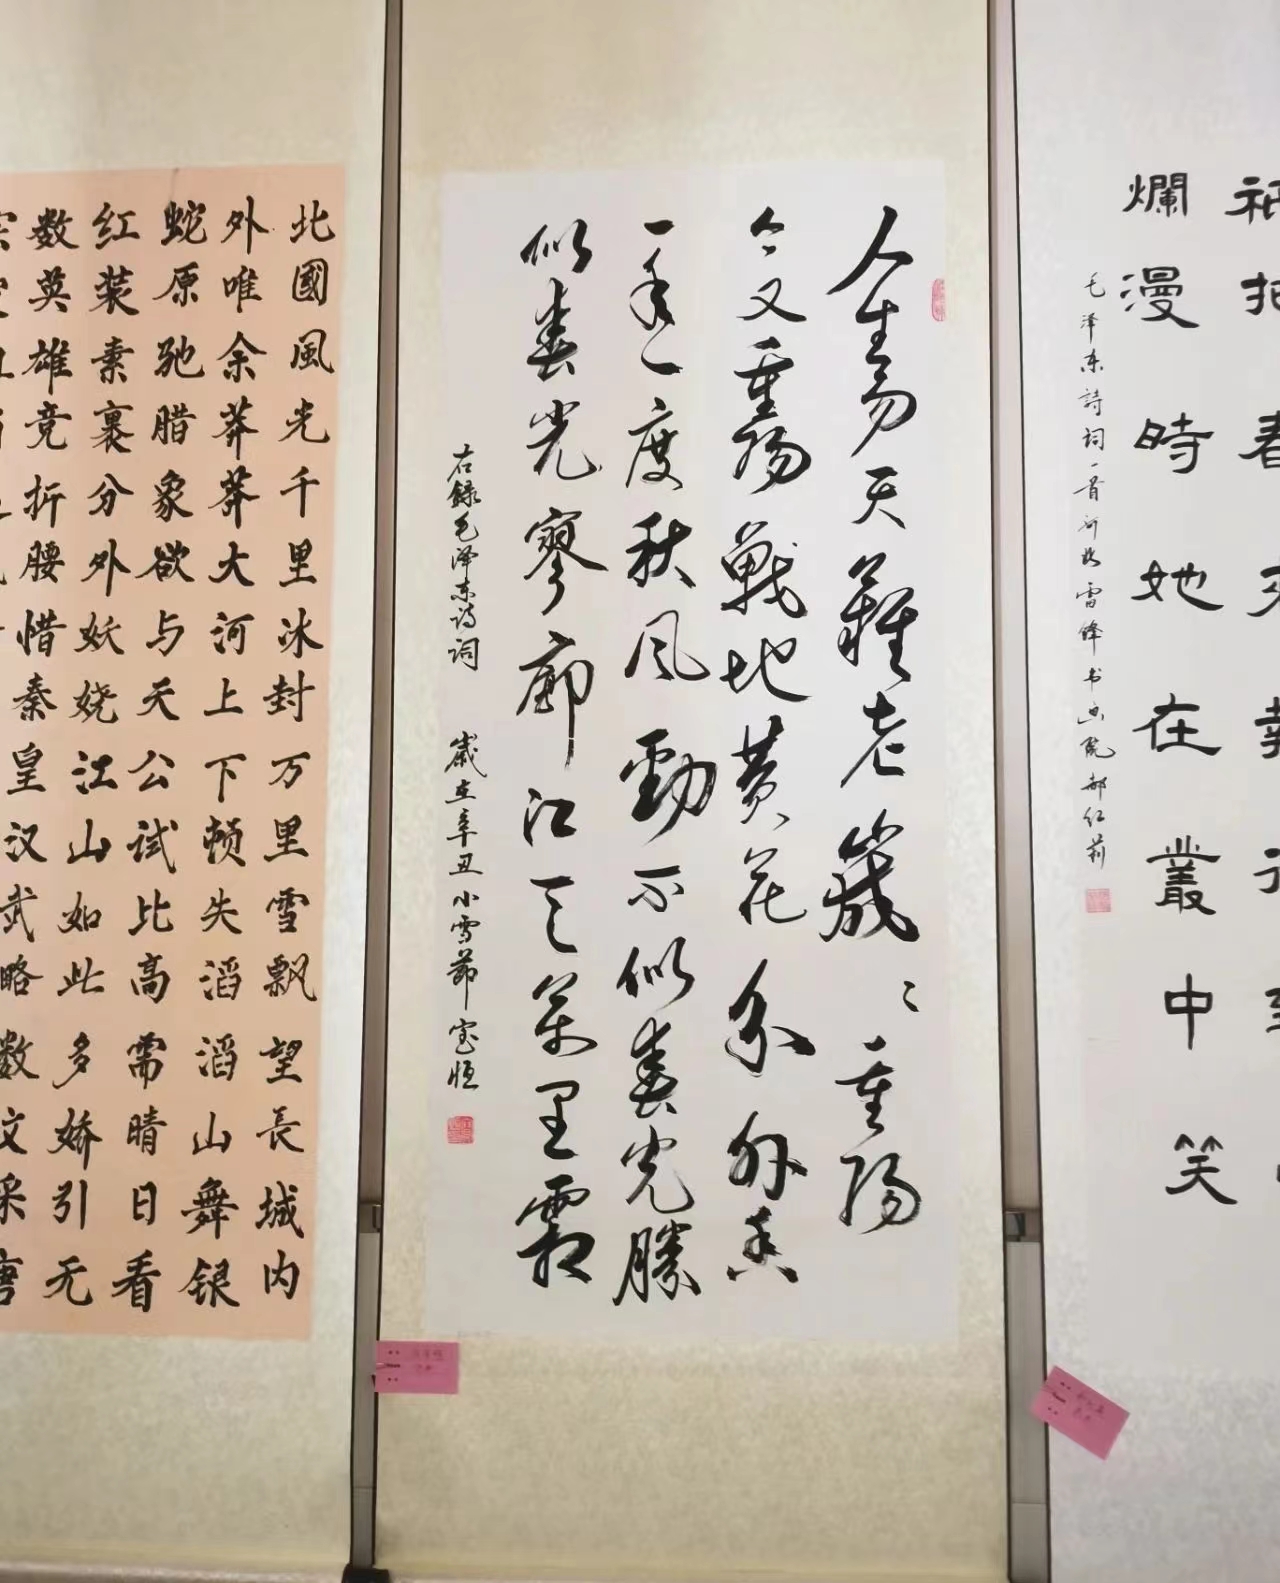 爛漫時她在叢中笑
毛泽东詩詞一首 雷锋书画院郝红莉
人生易天難老歲〻重陽
今又重陽戰地黄花分外香
一年一度秋风勁不似春光勝
似春光寥廓江天萬里霜
右録毛泽东诗词 歲在辛丑小雪節宝恒
北國風光千里冰封万里雪飘望長城内
外唯余莽莽大河上下顿失滔滔山舞银
蛇原驰腊象欲与天公试比高需晴日看
红装素裹分外妖娆江山如此多娇引无
数英雄竞折腰惜秦皇汉武略数文采唐